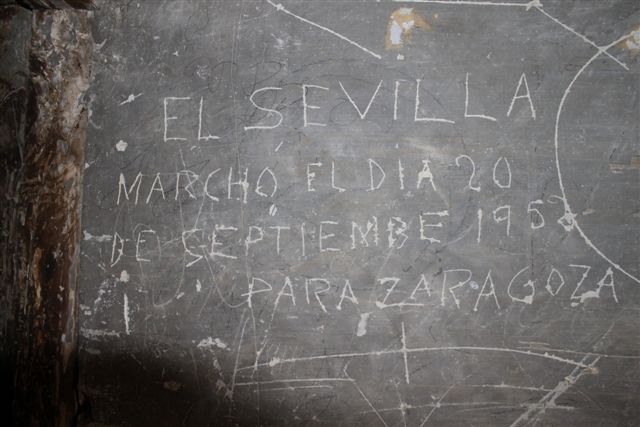 EL SEVILLA
MARCHÓ EL DIA 20
DE SEPTIEMBRE 1952
PARA ZARAGOZA